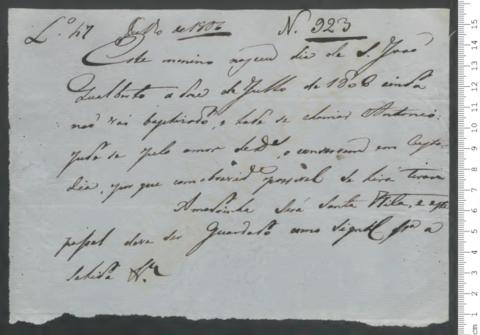 L.º 47 Julho de 1806 N. 923
Este menino nasceu dia de S. João
Gualberto a doze de Julho de 1806 ainda
não vai baptizado, e hade se chamar Antonio:
pede se pelo amor de D.s o conservem em
dia, por que com brevid.e possivel se hirá tirar
Amadrinha será Santa Rita, e este
papel deve ser Guardado como signal p.a a
sahida